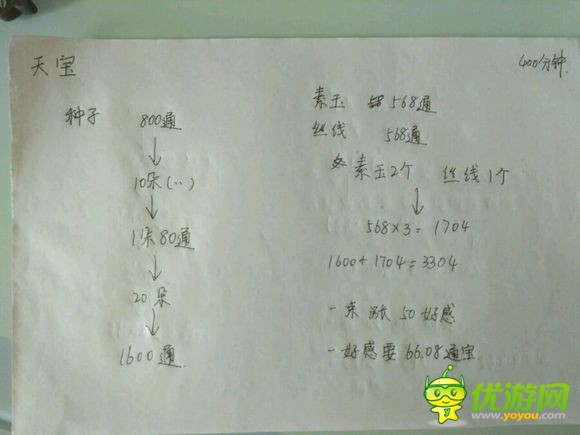 天宝
400分钟
种子 800通
10朵(..)
1朵80通
20朵
1600通
素玉 568通
丝线 568通
素玉2个 丝线1个
568×3=1704
1600+1704=3304
一束涨50好感
一好感要66.08通宝
优游网
www.yoyou.com